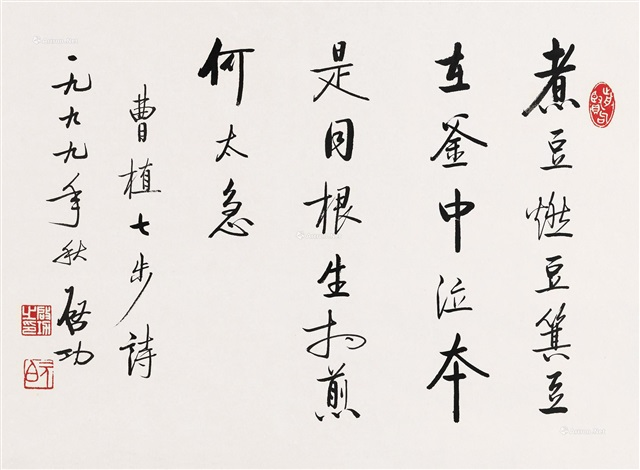 煮豆燃豆箕豆
在釜中泣本
是同根生相煎
何太急
曹植七步詩
一九九九年秋 启功
元白